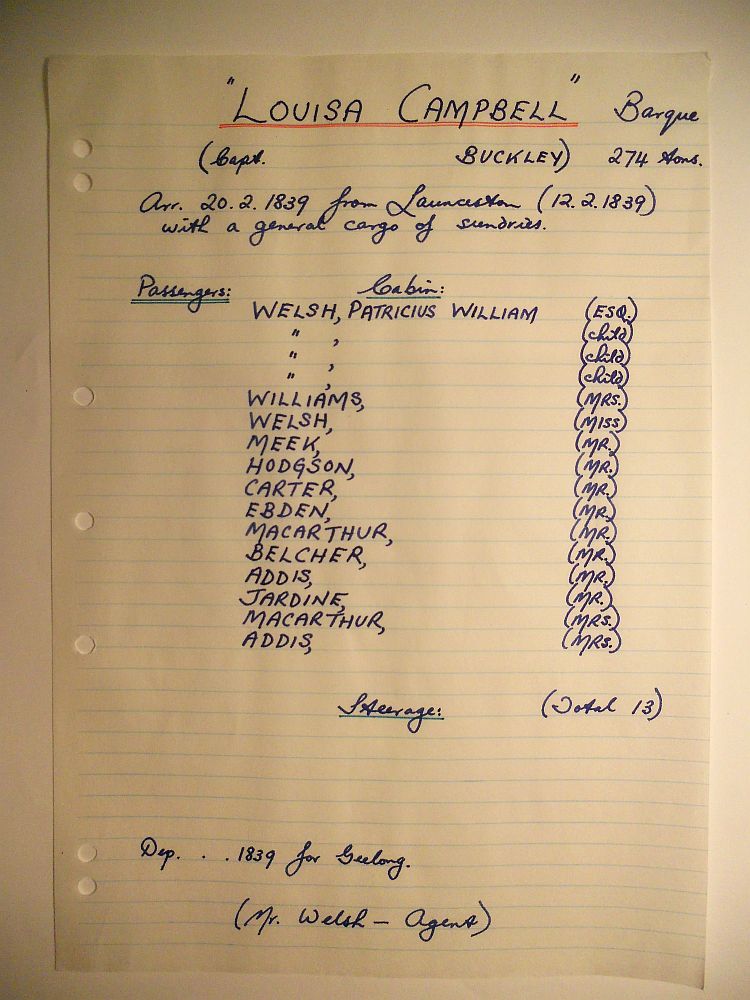 "LOUISA CAMPBELL" Barque
(Capt. BUCKLEY) 274 tons.
Arr. 20.2.1839 from Launceston (12.2.1839)
with a general cargo of sundries.
Passengers: Cabin:
WELSH, PATRICIUS WILLIAM (ESQ.)
" , (child)
" , (child)
" , (child)
WILLIAMS, (MRS.)
WELSH, (MISS)
MEEK, (MR.)
HODGSON, (MR.)
CARTER, (MR.)
EBDEN, (MR.)
MACARTHUR, (MR.)
BELCHER, (MR.)
ADDIS, (MR.)
JARDINE, (MR.)
MACARTHUR, (MRS.)
ADDIS, (MRS.)
Steerage: (Total 13)
Dep. . . 1839 for Geelong.
(Mr. Welsh – Agent)